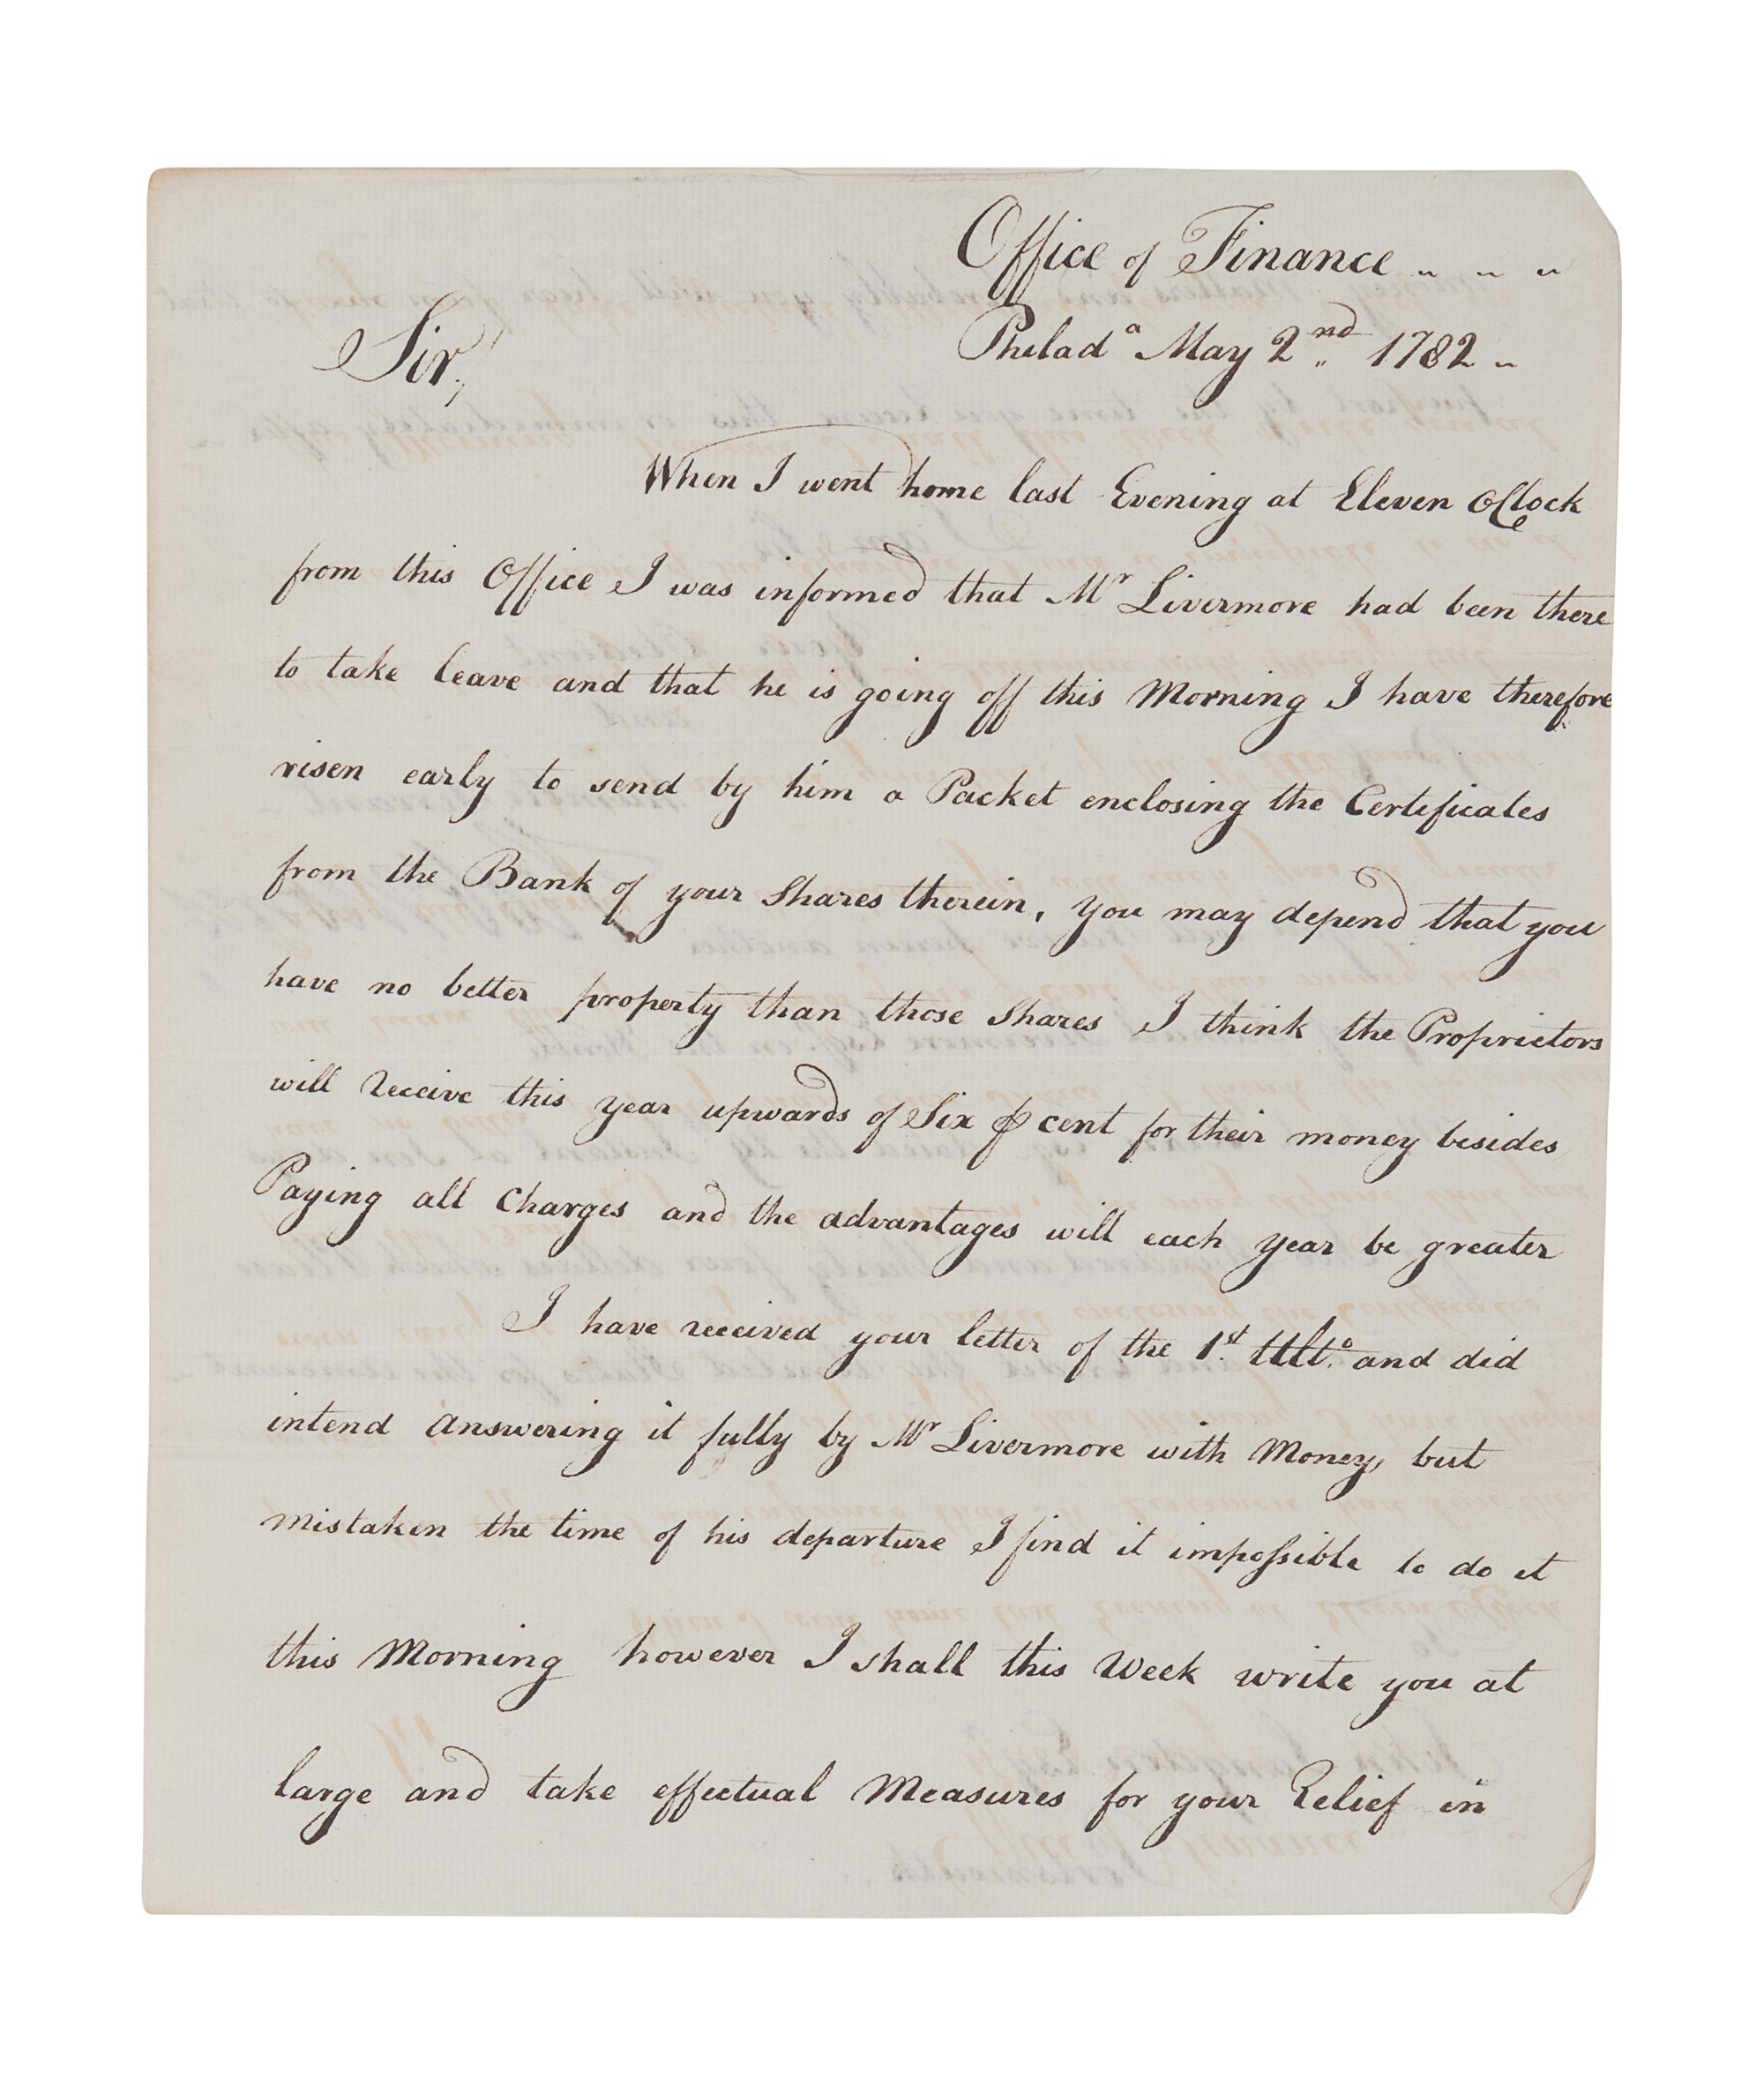 Office of Finance „ „ „
Philadª May 2nd 1782 „
Sir,
When I went home last Evening at Eleven OClock
from this Office I was informed that Mr Livermore had been there
to take leave and that he is going off this Morning I have therefore
risen early to send by him a Packet enclosing the Certificates
from the Bank of your Shares therein, you may depend that you
have no better property than those Shares I think the Proprietors
will receive this year upwards of Six ⅌ cent for their money besides
Paying all Charges and the advantages will each year be greater
I have received your letter of the 1st. Ulto. and did
intend answering it fully by Mr Livermore with Money, but
mistaken the time of his departure I find it impossible to do it
this Morning however I shall this Week write you at
large and take effectual Measures for your Relief in